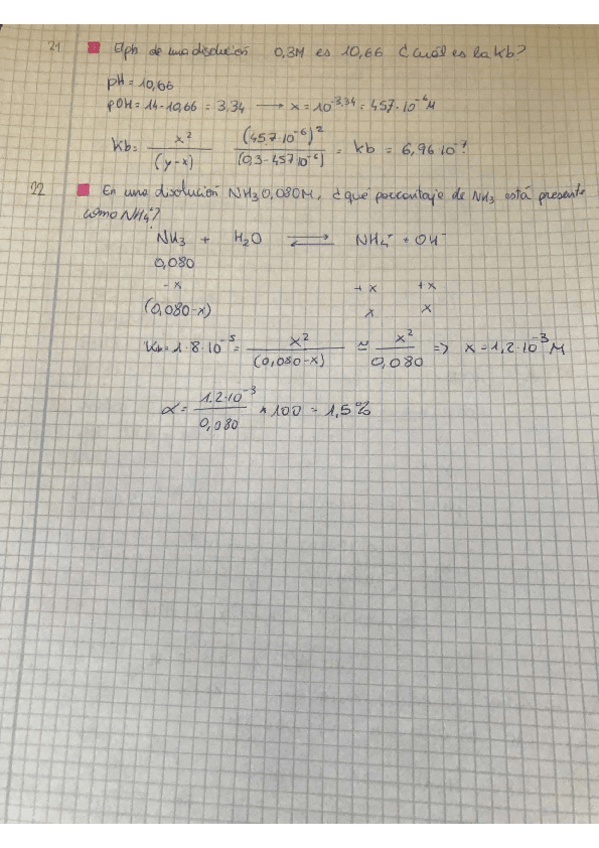 21 El ph de una disolución 0,3M es 10,66 ¿Cuál es la Kb?
pH = 10,66
pOH = 14-10,66 = 3,34 → x = 10^-3,34 = 457·10^-6 M
Kb = x²/(y-x) (457·10^-6)²/(0,3-457·10^-6) = Kb = 6,96·10^-7
22 En una disolución NH3 0,080M, ¿qué porcentaje de NH3 está presente
como NH4?
NH3 + H2O ⇌ NH4 + OH-
0,080
-x +x +x
(0,080-x) x x
Kb = 1.8·10^-5 = x²/(0,080-x) ≃ x²/0,080 => x = 1,2·10^-3 M
α = 1.2·10^-3/0,080 * 100 = 1,5%